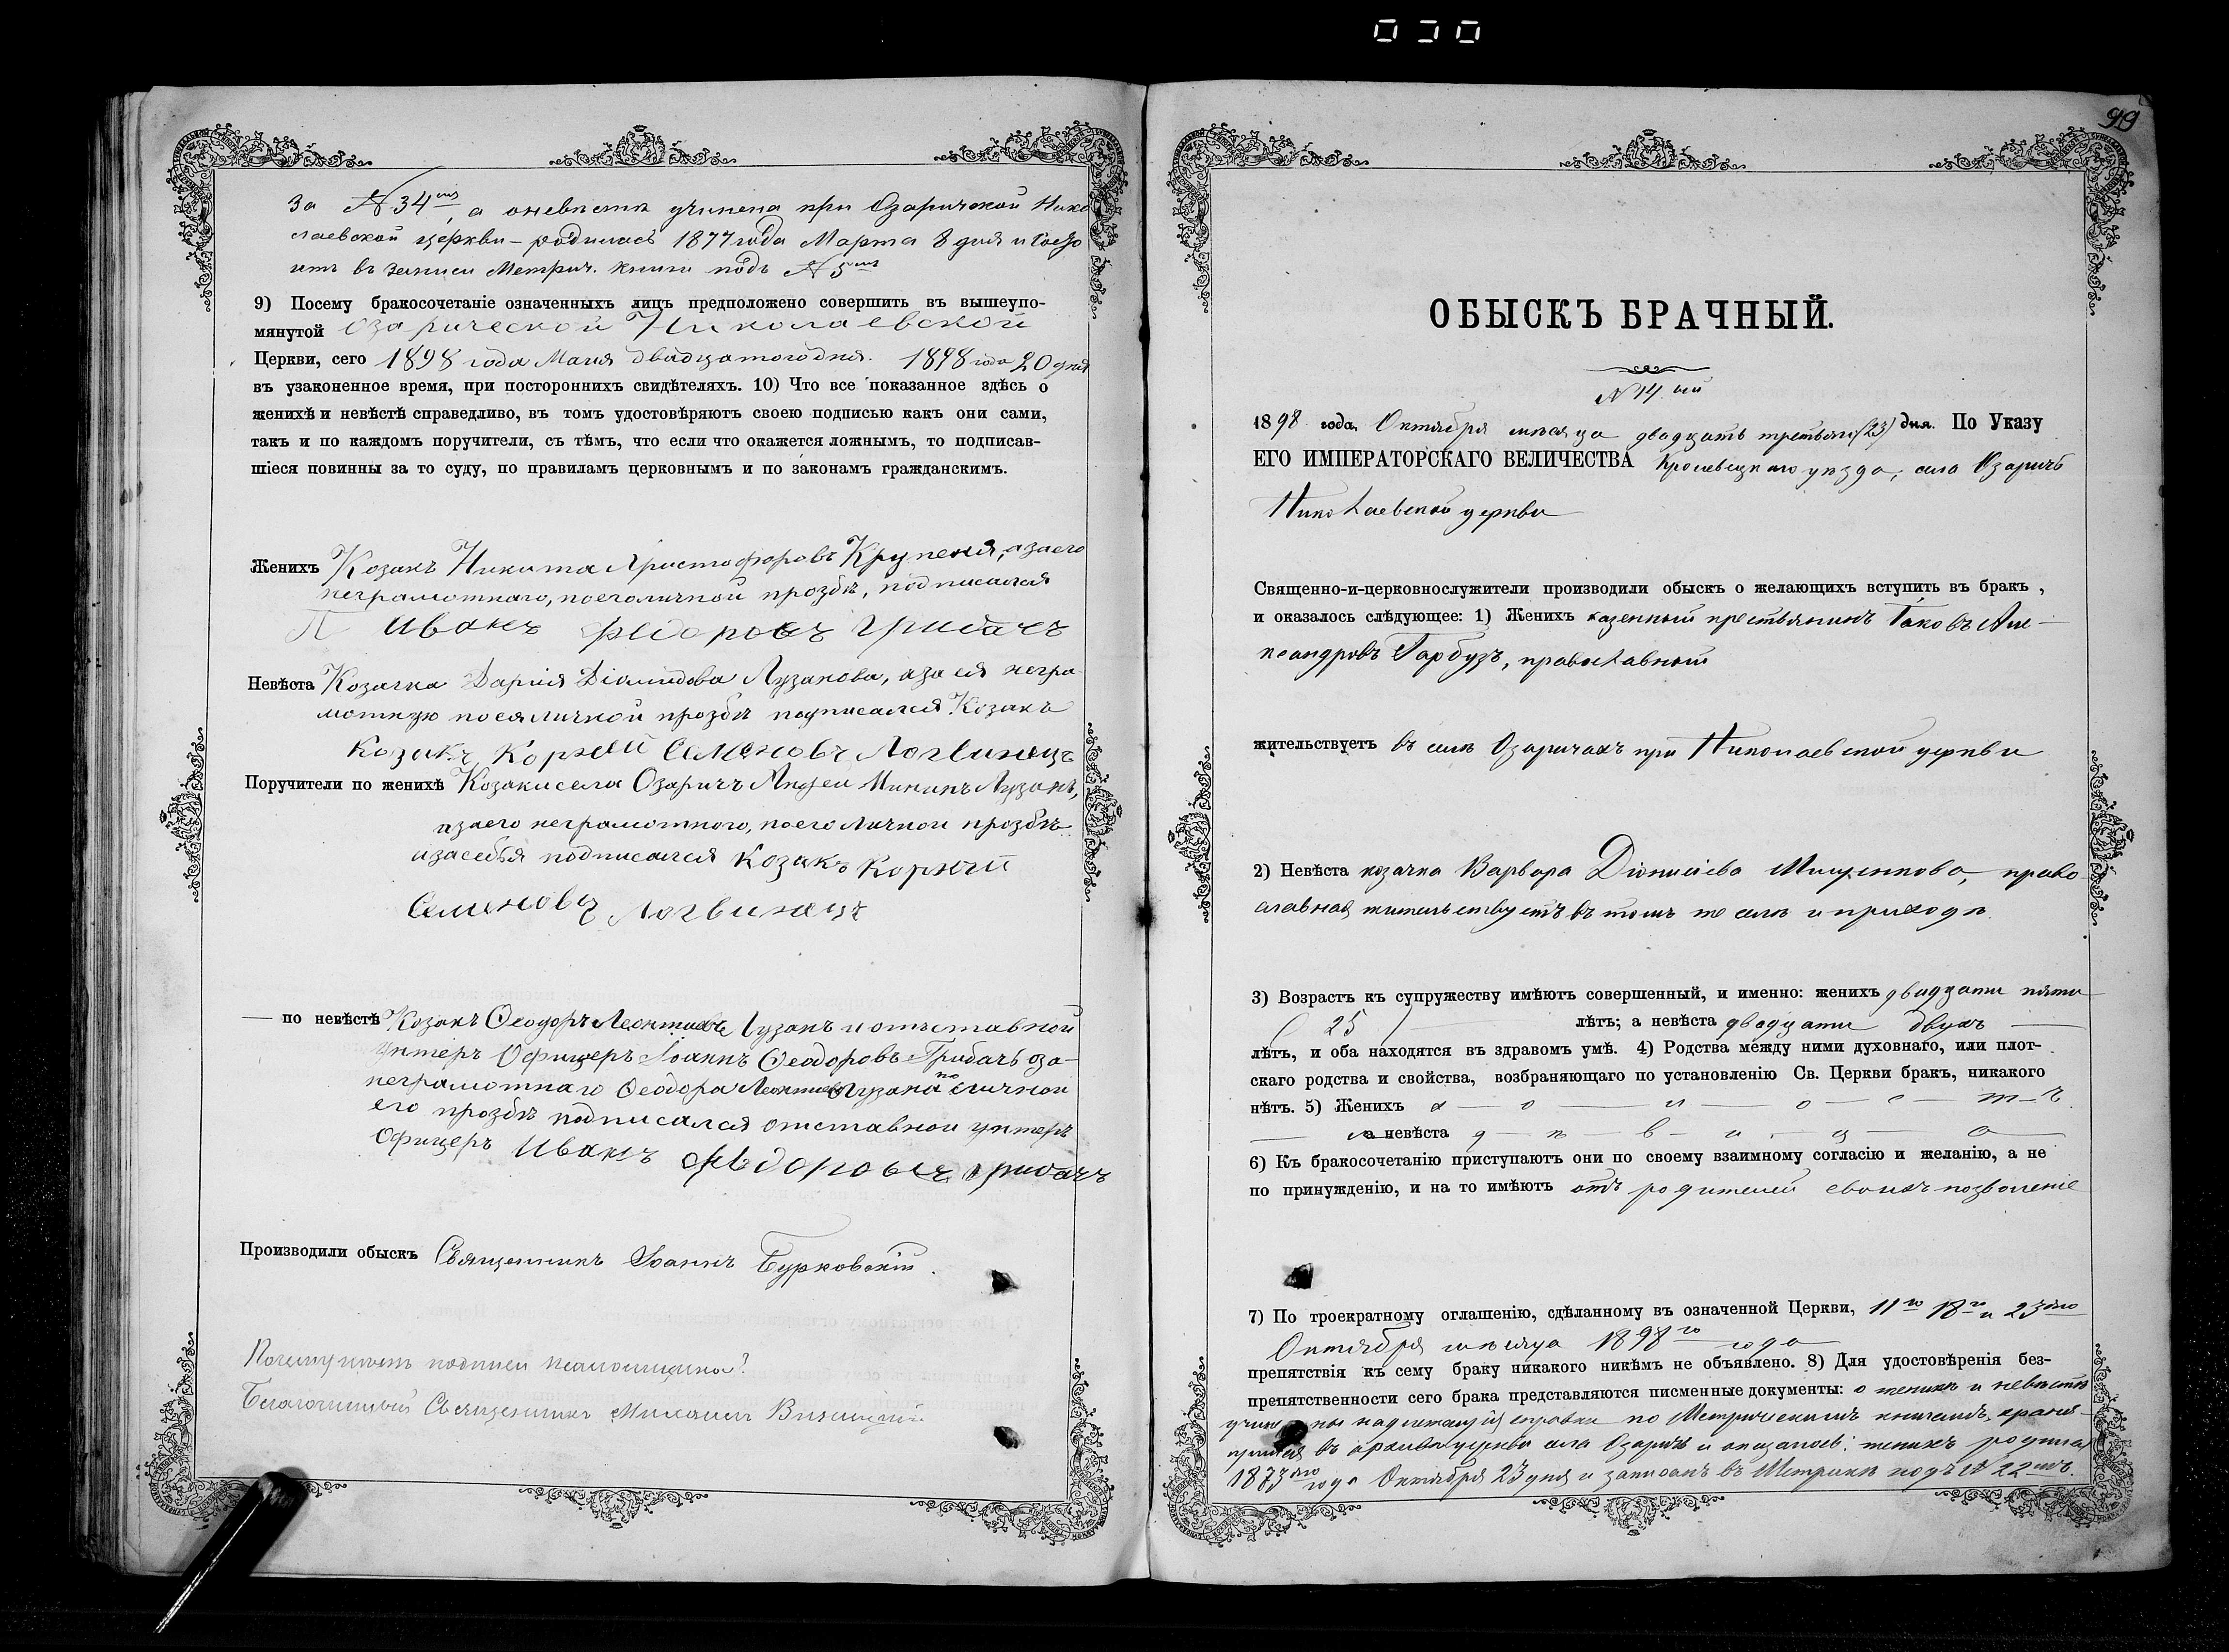 за № 34мъ, а оневѣстѣ учинена при Озаричской Нико
лаевской церкви – родилась 1877 года Марта 8 дня и
въ записи Метрич. книги подъ № 5мъ
9) Посему бракосочетаніе означенныхъ лицъ предположено совершить въ вышеупо-
мянутой Озарической Николаевской
Церкви, сего 1898 года Маія двадцатого дня. 1898 года 20 дня
въ узаконенное время, при постороннихъ свидѣтеляхъ. 10) Что все показанное здѣсь о
женихѣ и невѣстѣ справедливо, въ томъ удостовѣряютъ своею подписью какъ они сами,
такъ и по каждомъ поручители, съ тѣмъ, что если что окажется ложнымъ, то подписав-
шіеся повинны за то суду, по правиламъ церковнымъ и по законамъ гражданскимъ.
Женихъ Козакъ Никита Христофоровъ Крупеня, а за его
неграмотнаго, по его личной прозбѣ, подписался
Иванъ Федоровъ Грибачъ
Невѣста Козачка Дарія Діамидова Лузанова, а за ея негра-
мотную по ея личной прозбѣ подписался Козакъ
Козакъ Корней Семеновъ Логвинецъ
Поручители по женихѣ Козаки села Озаричъ Мининъ Лузанъ,
а за его неграмотного, по его личной прозбѣ
и за себя подписался Козакъ Корней
Семеновъ Логвинецъ
— по невѣстѣ Козакъ Ѳеодоръ Леонтіевъ Лузанъ и отставной
Унтеръ Офицеръ Іоаннъ Ѳеодоровъ Грибачъ а за-
неграмотнаго Ѳеодора Леонтіева Лузана по личной
его прозбѣ подписался отставной унтеръ
Офицеръ Иванъ Федоровъ Грибачъ
Производили обыскъ Священникъ Іоаннъ Бурковскій.
Почему нетъ подписи псаломщика?
Благочинный Священникъ Михаилъ
99
ОБЫСКЪ БРАЧНЫЙ.
№ 14ый
1898 года, Октября мѣсяца двадцать третьяго (23) дня. По Указу
ЕГО ИМПЕРАТОРСКАГО ВЕЛИЧЕСТВА Кролевецкаго уѣзда, села Озаричъ
Николаевской церкви
Священно-и-церковнослужители производили обыскъ о желающихъ вступить въ бракъ,
и оказалось слѣдующее: 1) Женихъ казенный крестьянинъ Іаковъ Але-
ксандровъ Гарбузъ, православный
жительствуетъ въ селѣ Озаричахъ при Николаевской церкви
2) Невѣста козачка Варвара Діонисіева Мищенкова, право-
славная, жительствуетъ въ томъ же селѣ и приходѣ.
3) Возрастъ къ супружеству имѣютъ совершенный, и именно: женихъ двадцати пяти
( 25 ) лѣтъ; а невѣста двадцати двухъ
лѣтъ, и оба находятся въ здравомъ умѣ. 4) Родства между ними духовнаго, или плот-
скаго родства и свойства, возбраняющаго по установленію Св. Церкви бракъ, никакого
нѣтъ. 5) Женихъ х — о — л — о — с — т — ъ
а невѣста д — ѣ — в — и — ц — а
6) Къ бракосочетанію приступаютъ они по своему взаимному согласію и желанію, а не
по принужденію, и на то имѣютъ отъ родителей своихъ позволеніе
7) По троекратному оглашенію, сдѣланному въ означенной Церкви, 11го 18го и 23яго
Октября мѣсяца 1898го года
препятствія къ сему браку никакого никѣмъ не объявлено. 8) Для удостовѣренія без-
препятственности сего брака представляются писменные документы: о женихѣ и невѣстѣ
учинены надлежащія справки по Метрическимъ книгамъ, храня-
щимся въ архивѣ церкви села Озаричъ и оказалось: женихъ родился
1873яго года Октября 23 дня и записанъ въ Метрикѣ подъ № 22мъ.